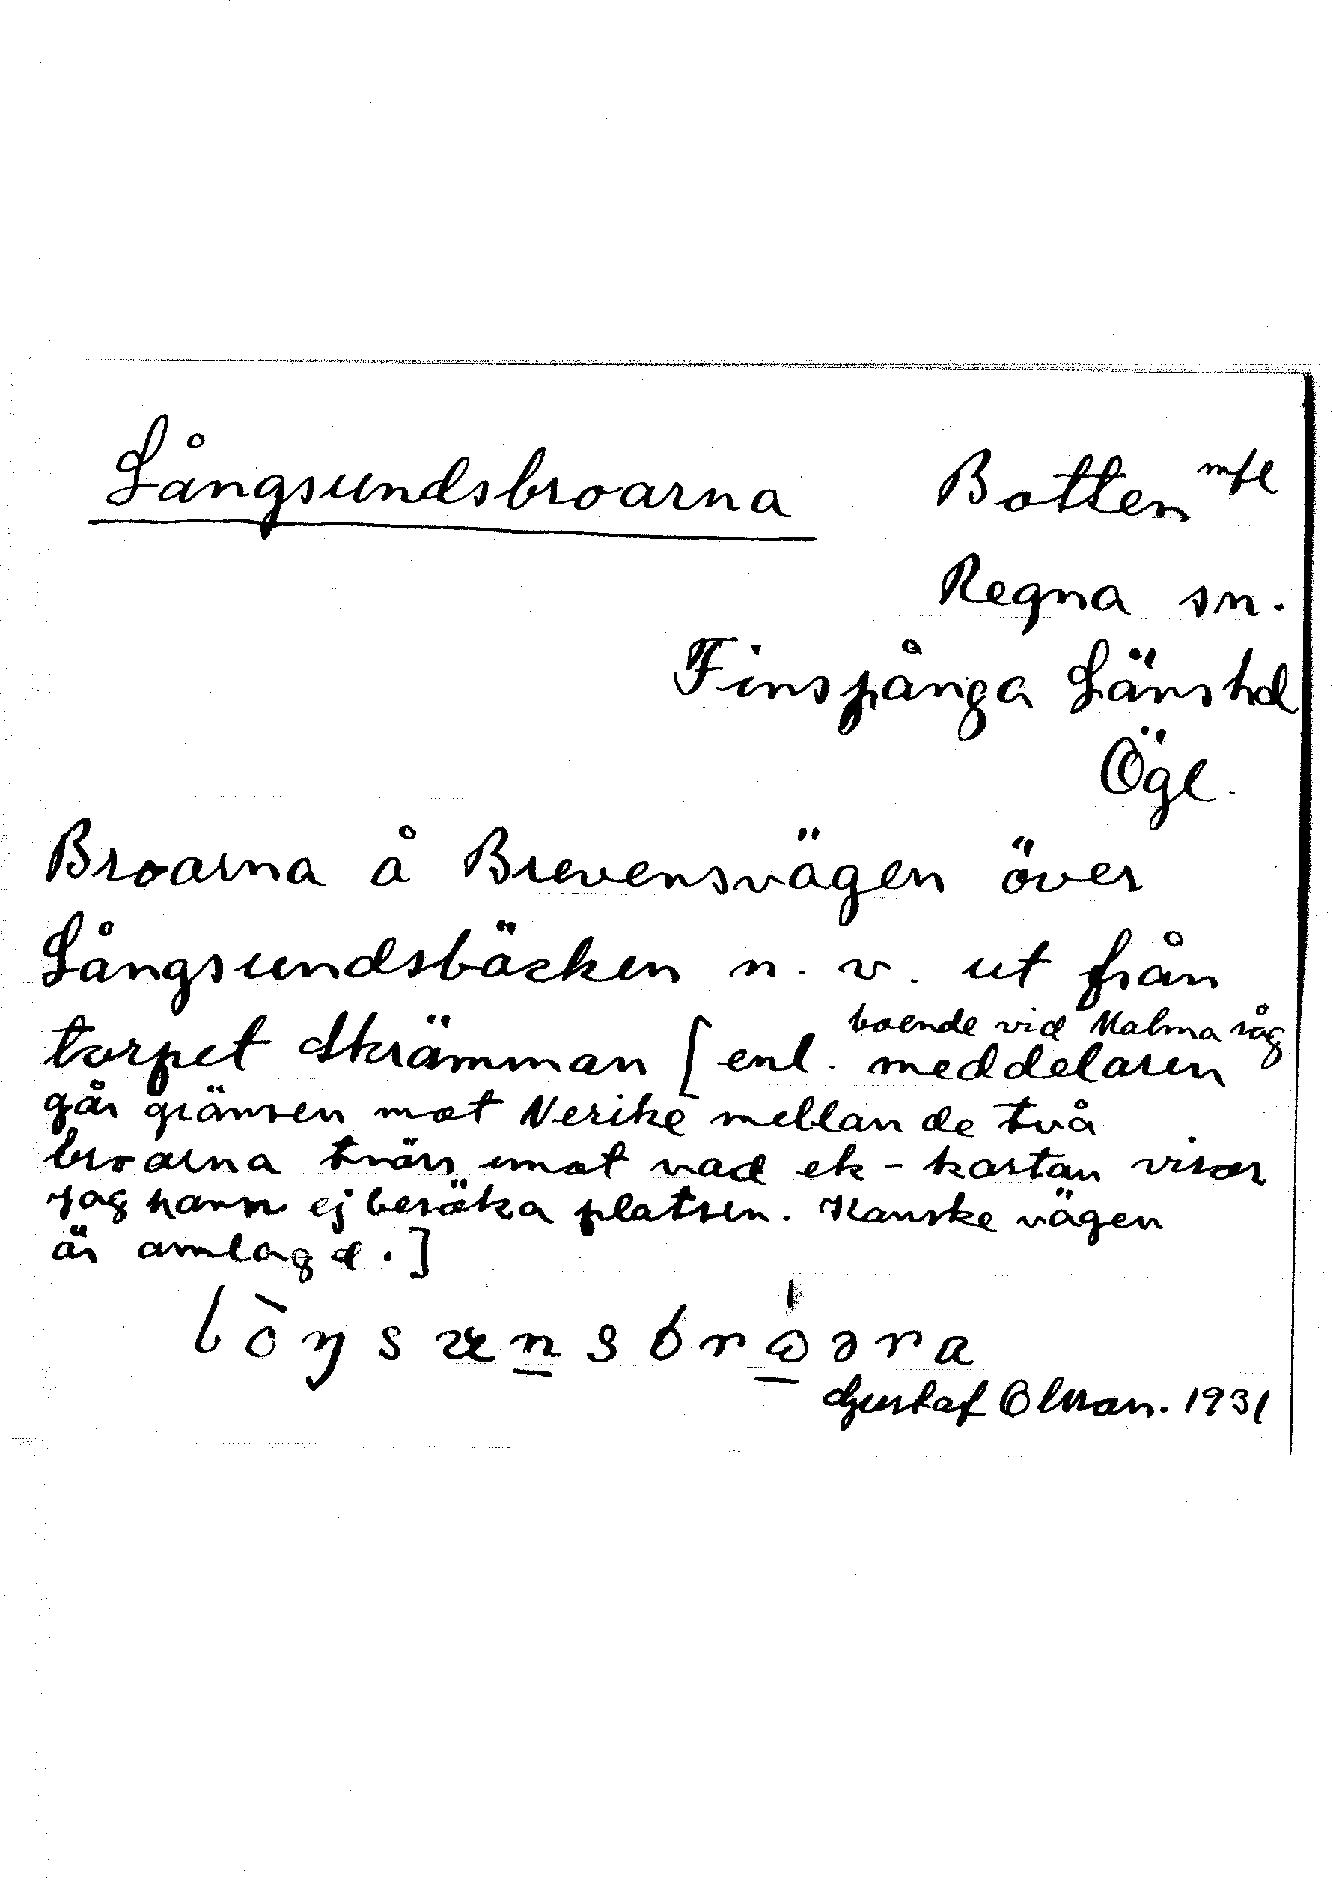 Långsundsbroarna
Botten mfl
Regna sn.
Finspånga Länshd
Ögl.
Broarna å Brevensvägen över
Långsundsbäcken n. v. ut från
torpet Skrämman [enl. meddelaren
boende vid Malma såg
går gränsen mot Nerike mellan de två
broarna tvärs emot vad ek-kartan visar
Jag hann ej besöka platsen. Kanske vägen
är omlagd.]
Gustaf Olsson. 1931